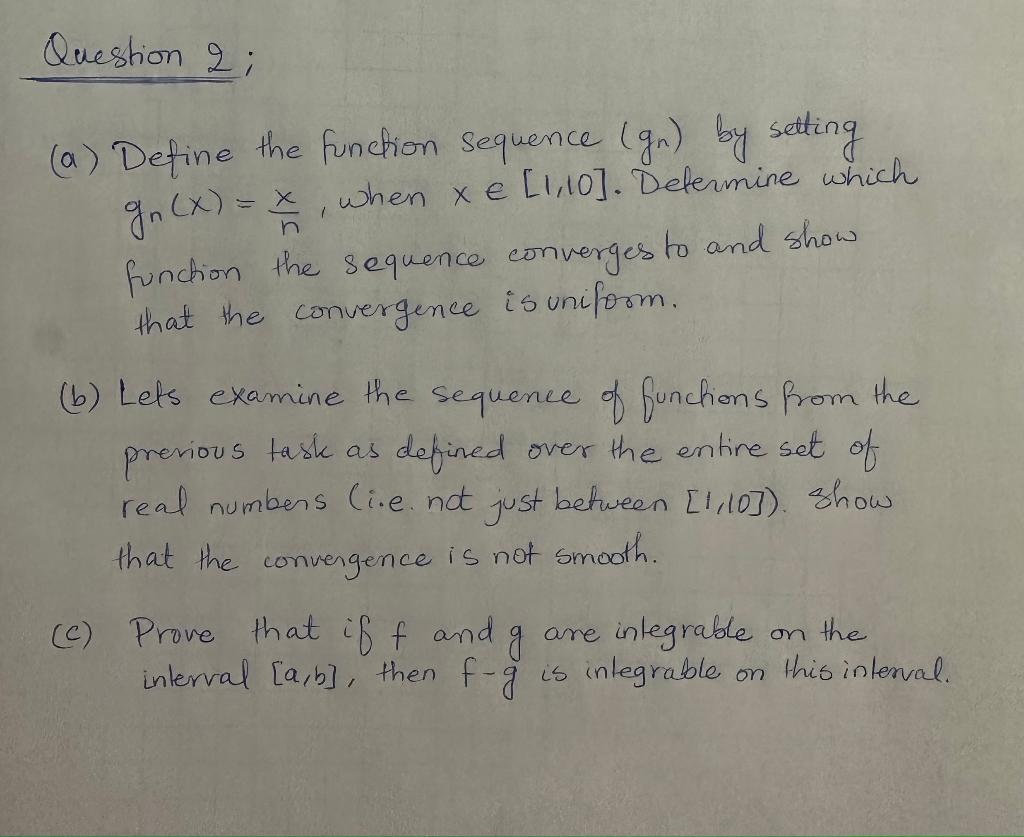 Question 2;
(a) Define the function sequence (gn) by setting
gn(x) = x/n, when x ∈ [1,10]. Determine which
function the sequence converges to and show
that the convergence is uniform.
(b) Lets examine the sequence of functions from the
previous task as defined over the entire set of
real numbers (i.e. not just between [1,10]). Show
that the convergence is not smooth.
(c) Prove that if f and g are integrable on the
interval [a,b], then f-g is integrable on this interval.